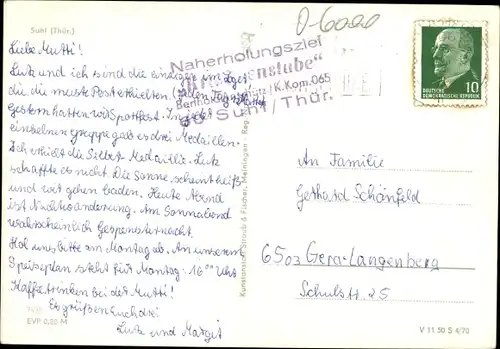 Suhl (Thür.)
0-6000
Liebe Mutti!
Lutz und ich sind die einzigen im Lager
die die meiste Post erhielten
Gestern hatten wir Sportfest. In jeder
einzelnen Gruppe gab es drei Medaillen.
Ich erhielt die Silber-Medaille. Lutz
schaffte es nicht. Die Sonne scheint heiß
und wir gehen baden. Heute Abend
ist Nachtwanderung. Am Sonnabend
wahrscheinlich Gespensternacht.
Hol uns bitte am Montag ab. An unserem
Speiseplan steht für Montag: 16⁰⁰ Uhr
Kaffeetrinken bei der Mutti!
Es grüßen Euch drei
Lutz und Margit
EVP 0,20 M
Kunstanstalt Straub & Fischer, Meiningen
Naherholungsziel
65 Suhl/Thür.
DEUTSCHE
DEMOKRATISCHE REPUBLIK
10
An Familie
Gerhard Schönfeld
6503 Gera-Langenberg
Schulstr. 25
V 11 50 S 4/70